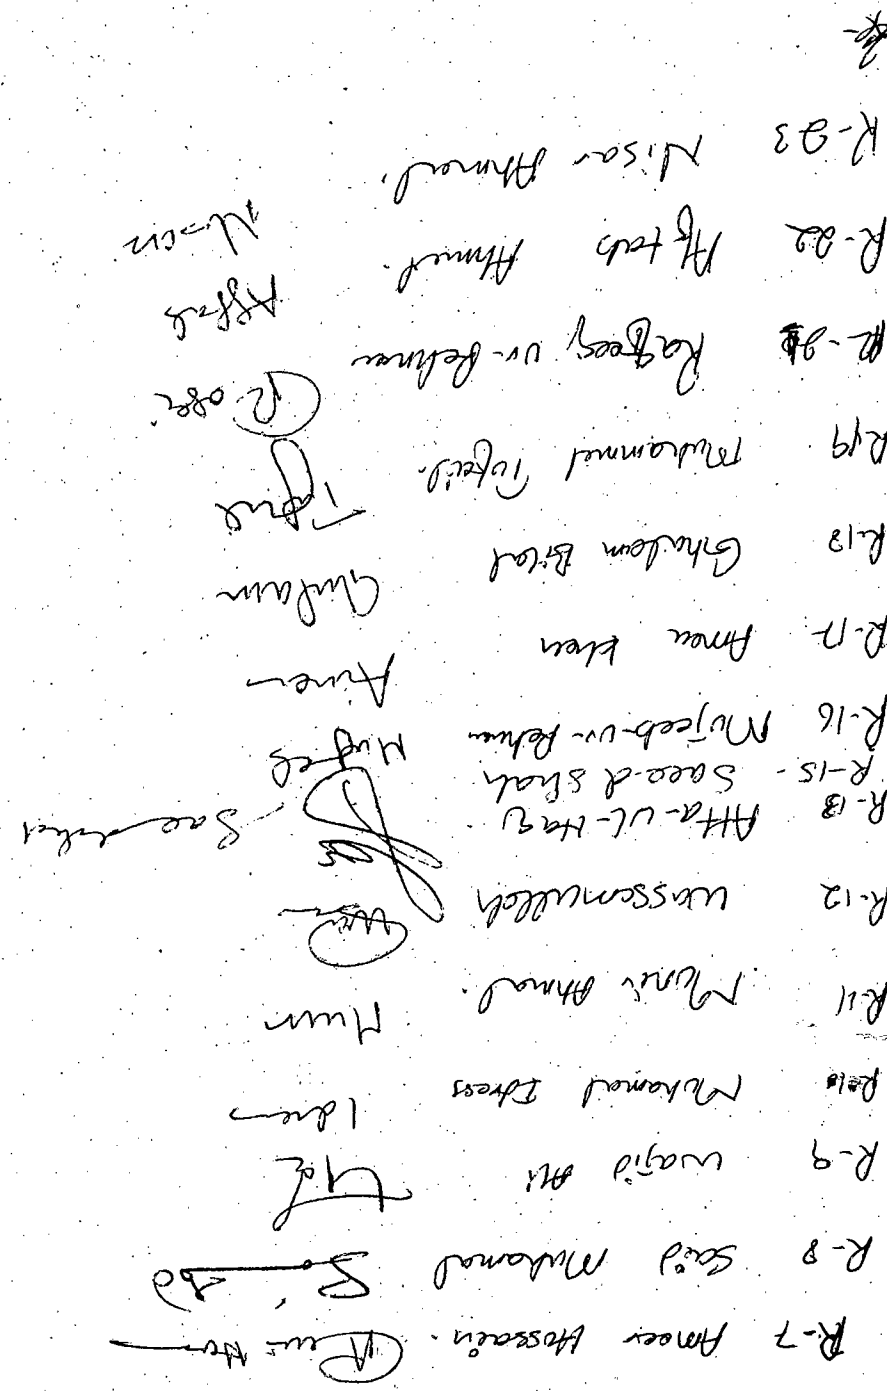 R-7 Ameer Hossain.
R-8 Said Muhamad
R-9 Wajid Ali
R-10 Muhamad Idrees Idrees
R-11 Munir Ahmad. Munir
R-12 Wassemullah
R-13 Atta-ul-Haq.
R-15 - Saeed Shah
R-16 Mujeeb-ur-Rehman Mujeeb
R-17 Ameer Khan
R-18 Ghulam Bilal Ghulam
R-19 Muhammad Tufail. Tufail
Rafeeq ur-Rehman
R-22 Aftab Ahmad. Aftab
R-23 Nisar Ahmad.